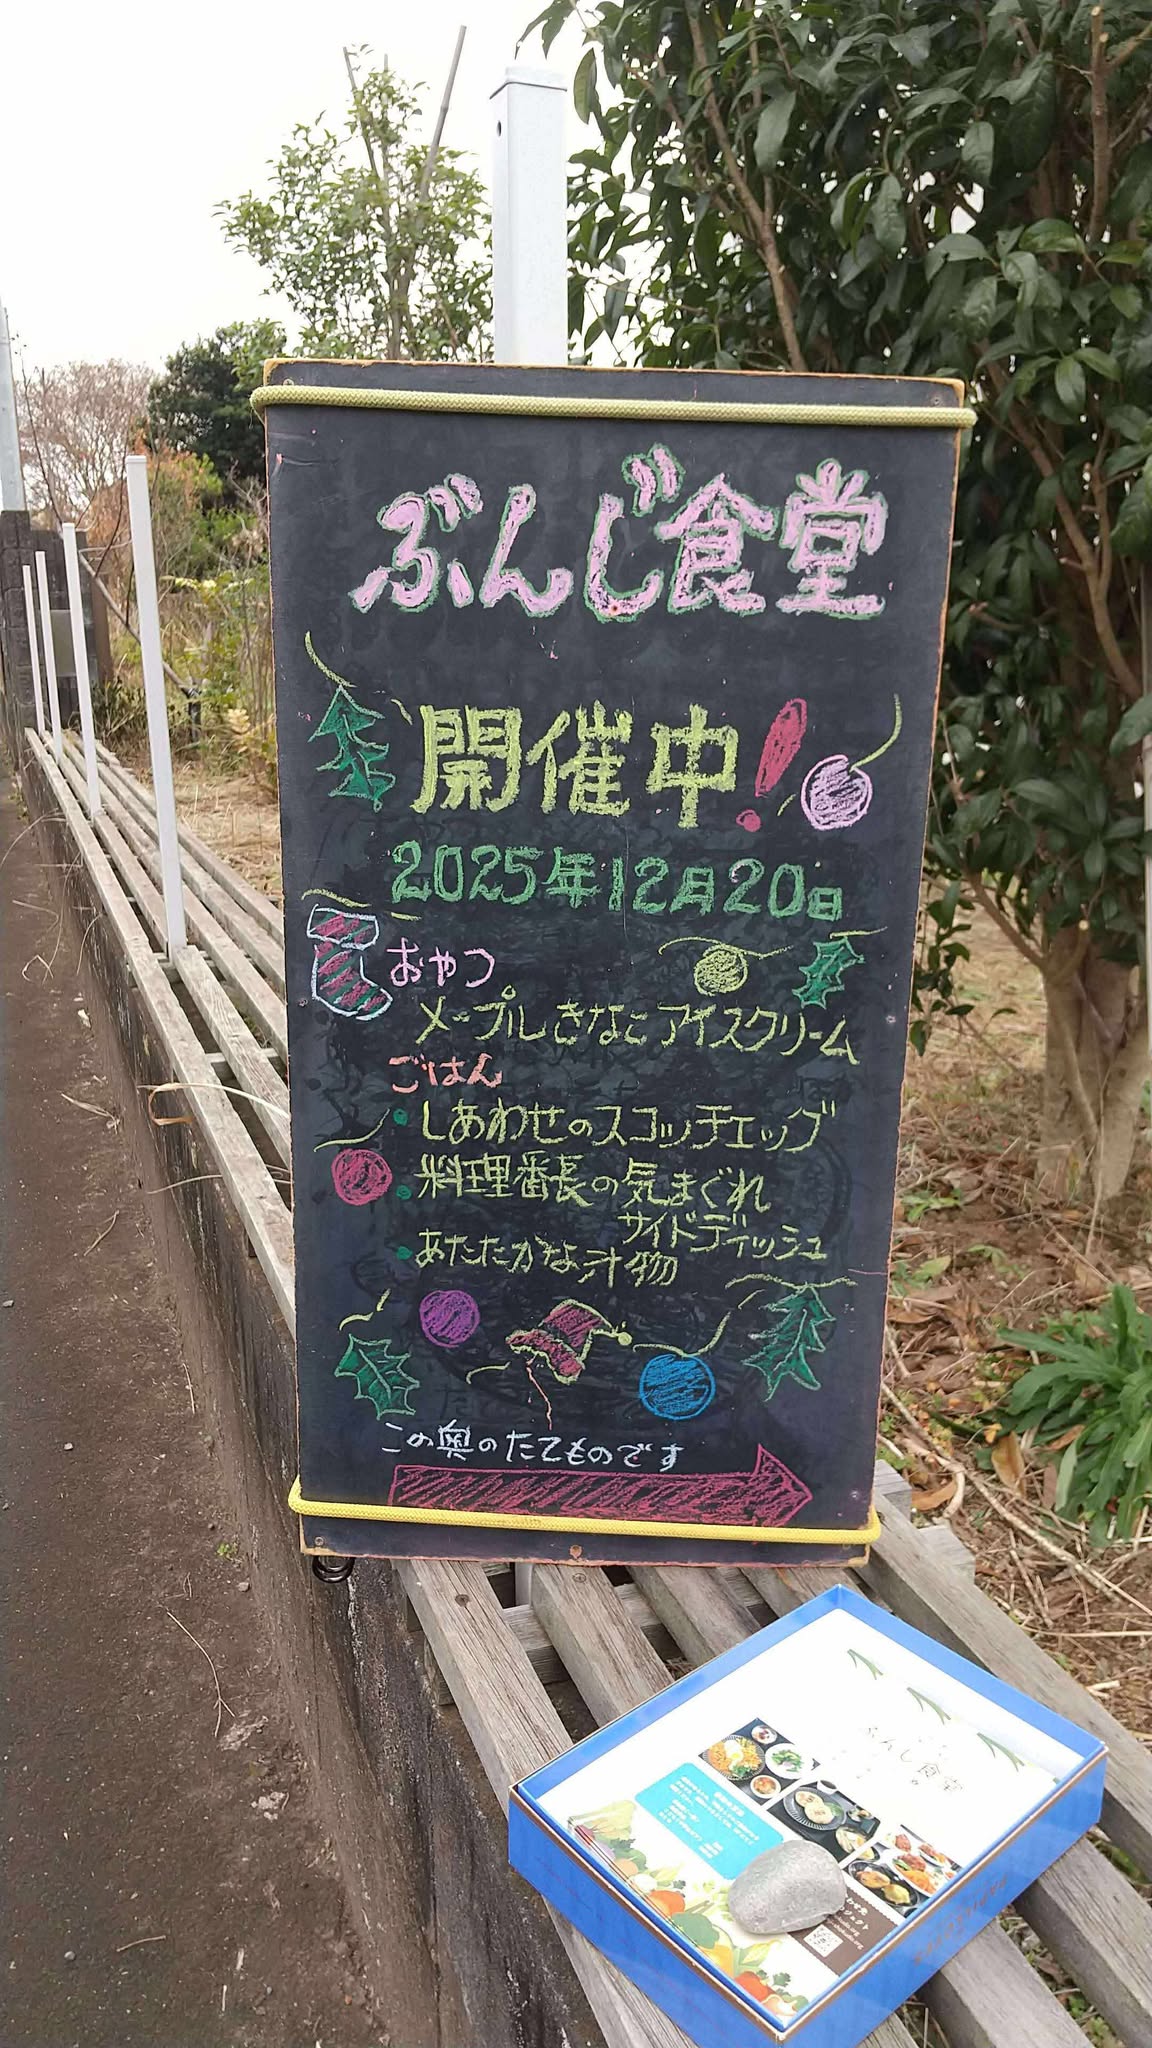 ぶんじ食堂
開催中!
2025年12月20日
おやつ
メープルきなこアイスクリーム
ごはん
・しあわせのスコッチエッグ
・料理番長の気まぐれ
サイドディッシュ
・あたたかな汁物
この奥のたてものです
ぶんじ食堂